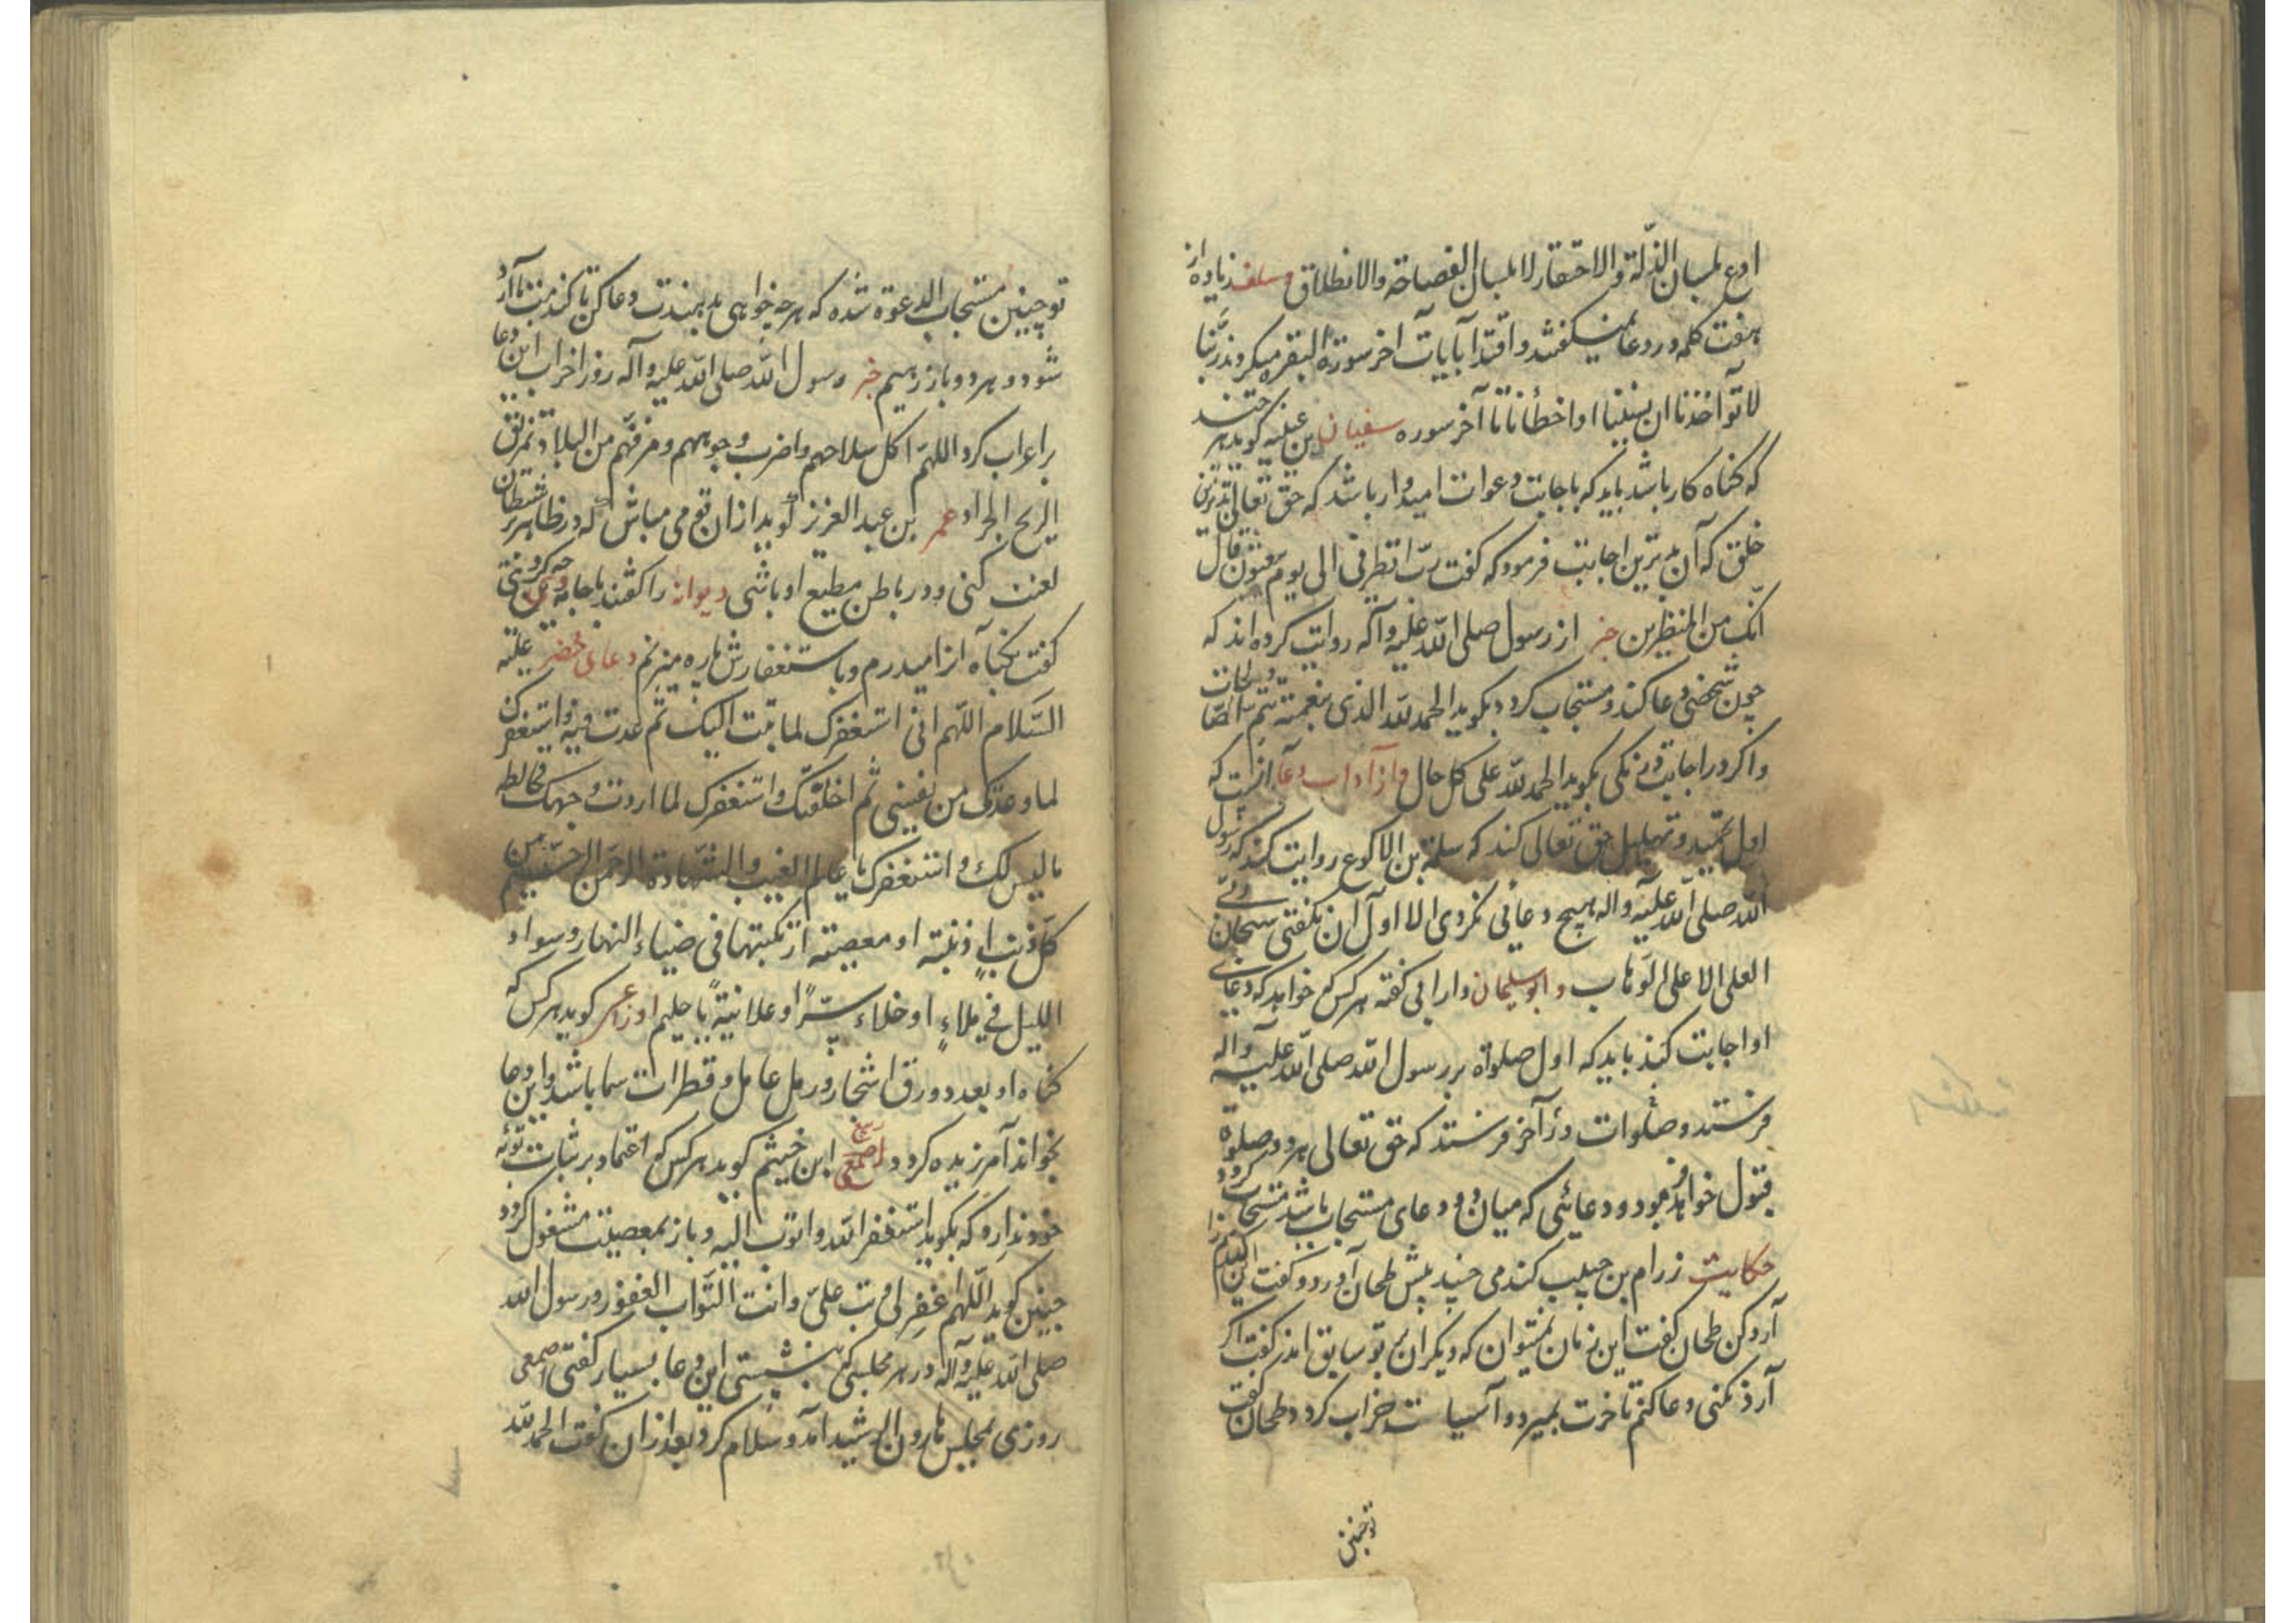 ادع بلسان الذلّة والاحتقار لا بلسان الفصاحة والانطلاق وسلف زیاده از
هفت کلمه در دعا نمیکفتند واقتدا بآیات آخر سورة البقره میکردند ربّنا
لا تؤاخذنا ان نسینا او اخطأنا تا آخر سوره سفیان بن عیینه کوید هر چند
که کناه کار باشد باید که باجابت دعوات امیدوار باشد که حق تعالی بدترین
خلق که آن بدترین اجابت فرمود که کفت ربّ انظرنی الی یوم یبعثون قال
انّک من المنظرین خبر از رسول صلی الله علیه وآله روایت کرده اند که
چون شخصی دعا کند ومستجاب کردد بکوید الحمد لله الذی بنعمته تتم الصالحات
واکر در اجابت درنکی بکوید الحمد لله علی کل حال واز آداب دعا آنست که
اول تمجید وتهلیل حق تعالی کند که سلمة بن الاکوع روایت کند که رسول
الله صلی الله علیه واله هیچ دعائی نکردی الا اول آن بکفتی سبحان ربّی
العلی الاعلی الوهاب وابو سلیمان دارانی کفته هر کس که خواهد که دعای
او اجابت کند باید که اول صلواة بر رسول الله صلی الله علیه واله
فرستد وصلوات در آخر فرستد که حق تعالی هر دو صلوة
قبول خواهد فرمود ودعائی که میان دو دعای مستجاب باشد مستجاب کردد
حکایت زرام بن حبیب کندمی چند پیش طحان آورد وکفت این کندم را
آرد کن طحان کفت این زمان نمیتوان که دیکران بر تو سابق اند کفت اکر
آرد نکنی دعا کنم تا خرت بمیرد وآسیات خراب کردد طحان کفت
توچنین
توچنین مستجاب الدعوة شده که هرچه خواهی بدهندت دعا کن تا کندمت آرد
شود وهر دو باز رهیم خبر رسول الله صلی الله علیه وآله روز احزاب این دعا
بر اعراب کرد اللهم اکل سلاحهم واضرب وجوههم ومزقهم من البلاد تمزیق
الریح الجراد عمر بن عبد العزیز کوید از ان قوم مباش که در ظاهر بر شیطان
لعنت کنی ودر باطن مطیع او باشی دیوانه را کفتند با جامه چه کردی
کفت بکناه از هم میدرم وباستغفارش پاره میزنم دعای خضر علیه
السلام اللهم انی استغفرک لما تبت الیک ثم عدت فیه واستغفرک
لما وعدتک من نفسی ثم اخلفتک واستغفرک لما اردت وجهک فخالطه
ما لیس لک واستغفرک یا عالم الغیب والشهادة الرحمن الرحیم من
کل ذنب اذنبته او معصیته ارتکبتها فی ضیاء النهار وسواد
اللیل فی ملاءٍ او خلاء سرّاً او علانیةً یا حلیم اوزاعی کوید هر کس که
کناه او بعدد ورق اشجار ورمل عامل وقطرات سما باشد واین دعا
بخواند آمرزیده کردد ربیع ابن خیثم کوید هر کس که اعتماد بر ثبات توبه
خود ندارد که بکوید استغفر الله واتوب الیه وباز بمعصیت مشغول کردد
چنین کوید اللهم اغفر لی وتب علیّ وانت التوّاب الغفور ورسول الله
صلی الله علیه وآله در هر مجلسی که بنشستی این دعا بسیار کفتی اصمعی
روزی بمجلس هارون الرشید آمد وسلام کرد بعد از ان کفت الحمد لله